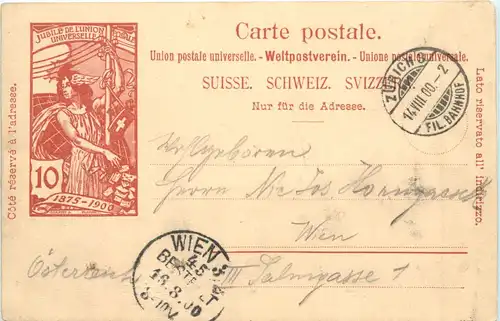 JUBILÉ DE L'UNION
UNIVERSELLE
POSTALE
10
1875-1900
Côté réservé à l'adresse.
Carte postale.
Union postale universelle. - Weltpostverein. - Unione postale universale.
SUISSE. SCHWEIZ. SVIZZ
Nur für die Adresse.
Lato riservato all' indirizzo.
ZÜRICH
14.VIII.00.-2
FIL. BAHNHOF
Herrn
Jos
Wien
WIEN
45
BESTELLT
16.8.00
Österreich III
1